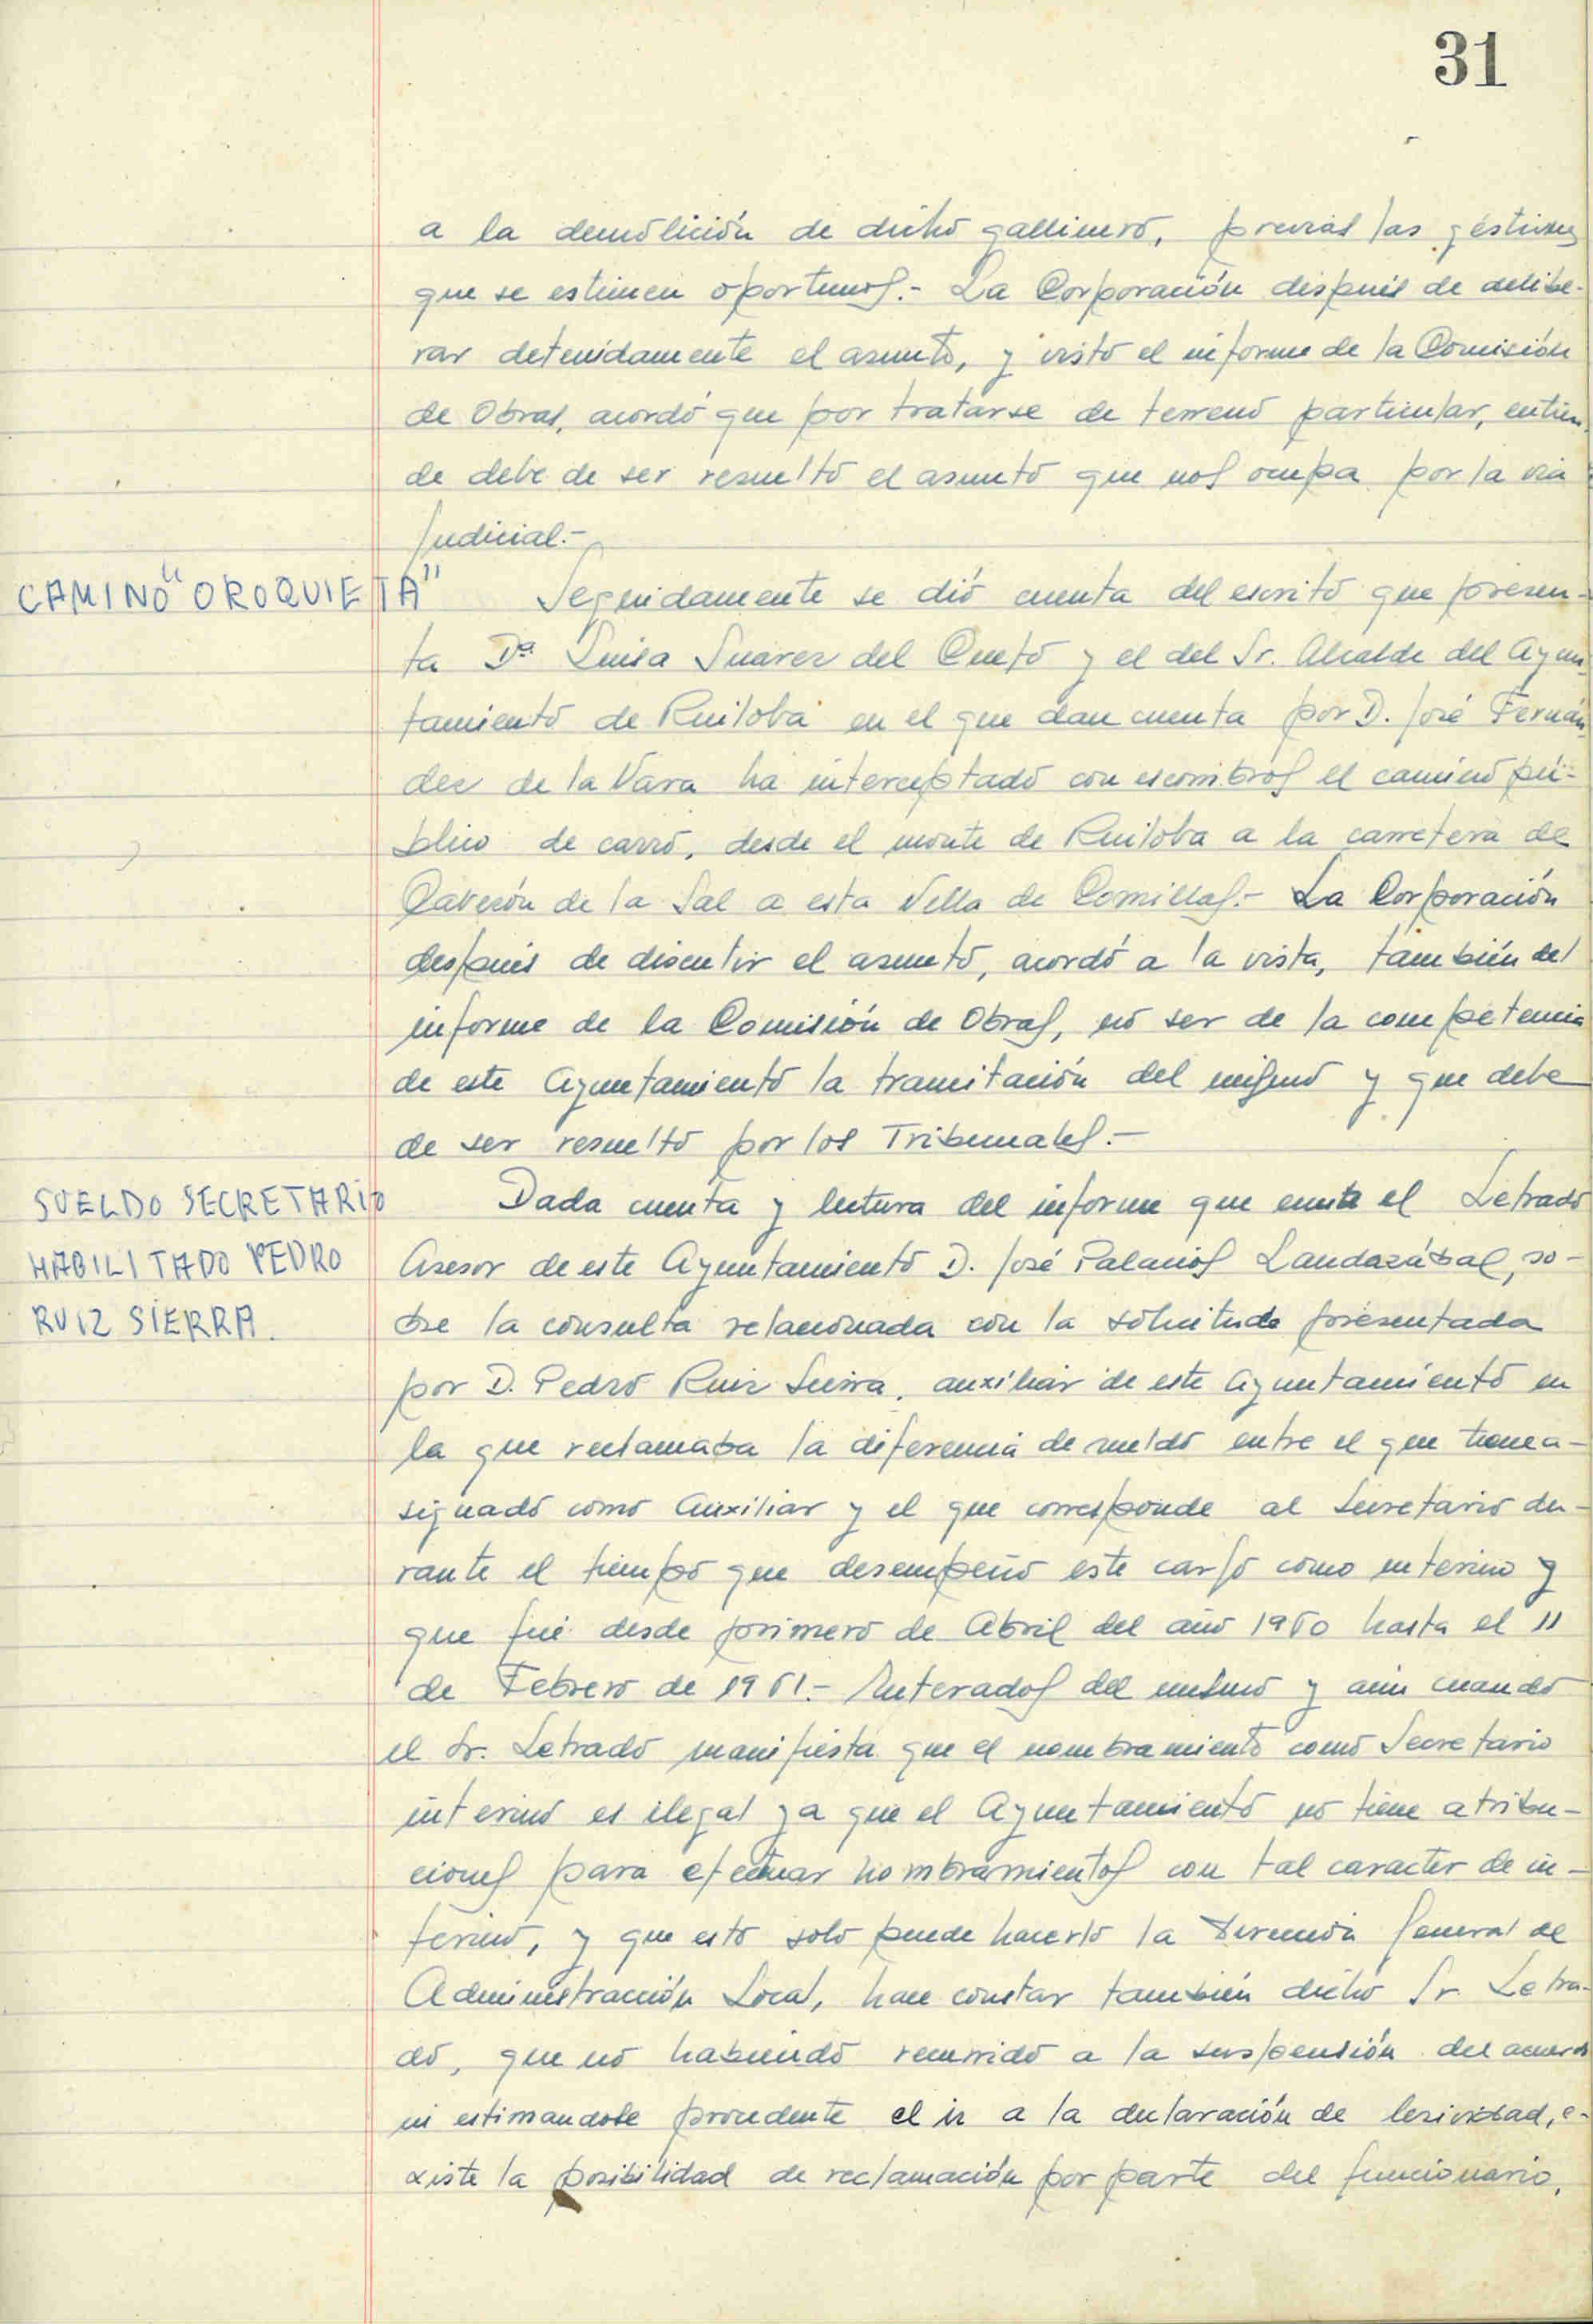 31
a la demolición de dicho gallinero, previas las gestiones
que se estimen oportunas.- La Corporación después de delibe-
rar detenidamente el asunto, y visto el informe de la Comisión
de Obras, acordó que por tratarse de terreno particular, entien-
de debe de ser resuelto el asunto que nos ocupa por la via
Judicial.-
CAMINO "OROQUIETA"
Seguidamente se dió cuenta del escrito que presen-
ta Dª Luisa Suarez del Cueto y el del Sr. Alcalde del Ayun-
tamiento de Ruiloba en el que dan cuenta por D. José Fernán-
dez de la Vara ha interceptado con escombros el camino pú-
blico de carro, desde el monte de Ruiloba a la carretera de
Cabezón de la Sal a esta Villa de Comillas.- La Corporación
después de discutir el asunto, acordó a la vista, también del
informe de la Comisión de Obras, no ser de la competencia
de este Ayuntamiento la tramitación del mismo y que debe
de ser resuelto por los Tribunales.-
SUELDO SECRETARIO
HABILITADO PEDRO
RUIZ SIERRA.
Dada cuenta y lectura del informe que emite el Letrado
Asesor de este Ayuntamiento D. José Palacios Landazábal, so-
bre la consulta relacionada con la solicitud presentada
por D. Pedro Ruiz Sierra, auxiliar de este Ayuntamiento en
la que reclamaba la diferencia de sueldo entre el que tiene a-
signado como Auxiliar y el que corresponde al Secretario du-
rante el tiempo que desempeño este cargo como interino y
que fué desde primero de Abril del año 1950 hasta el 11
de Febrero de 1951.- Enterados del mismo y aún cuando
el Sr. Letrado manifiesta que el nombramiento como Secretario
interino es ilegal ya que el Ayuntamiento no tiene atribu-
ciones para efectuar nombramientos con tal caracter de in-
terino, y que esto solo puede hacerlo la Dirección General de
Administracción Local, hace constar también dicho Sr. Letra-
do, que no habiendo recurrido a la suspensión del acuerdo
ni estimandose procedente el ir a la declaración de lesividad, e-
xiste la posibilidad de reclamación por parte del funcionario,